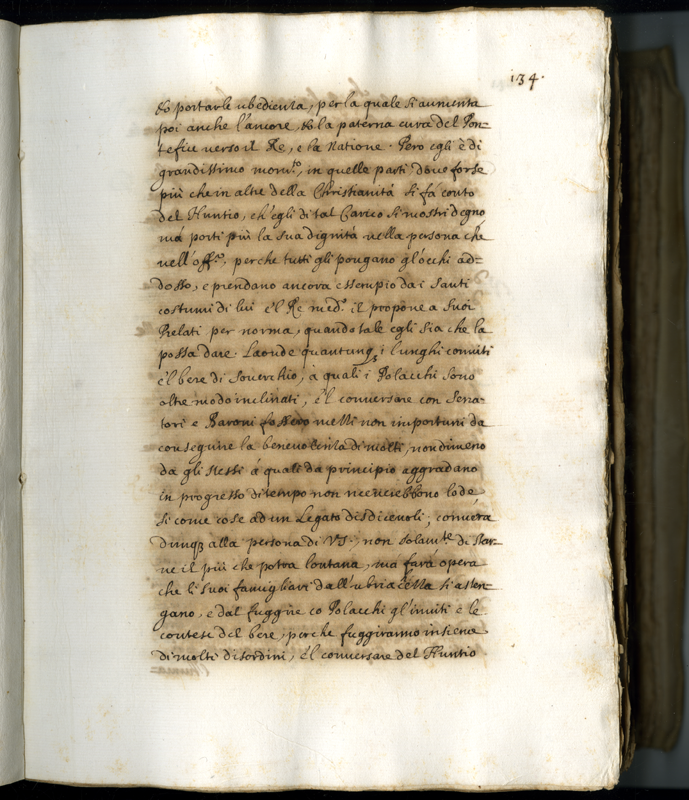 134.
& portarle ubedienza, per la quale si aumenta
poi anche l'amore, & la paterna cura del Pon-
tefice verso il Re, e la Natione. Però egli è di
grandissimo mom.to, in quelle parti dove forse
più che in altre della Christianità si fa conto
del Nuntio, ch'egli di tal Carico si mostri degno
mà porti più la sua dignità nella persona che
nell'off.o, perche tutti gli pongano gl'occhi ad-
dosso, e prendano ancora essempio da i Santi
costumi di lui e'l Re med.o il propone a suoi
Prelati per norma, quando tale egli sia che la
possa dare. Laonde quantunq; i lunghi conviti
e'l bere di soverchio, à quali i Polacchi sono
oltre modo inclinati, e'l conversare con Sena-
tori e Baroni fossero mezzi non importuni da
conseguire la benevolenza di molti, nondimeno
da gli stessi à quali da principio aggradano
in progresso di tempo non riceverebbono lode
si come cose ad un Legato disdicevoli; converrà
dunq; alla persona di V.S., non solam.te di star-
ne il più che potrà lontana, ma farà opera
che li suoi famigliari dall'ubriachezza si asten-
gano, e dal fuggire co Polacchi gl'inviti e le
contese del bere, perche fuggiranno insieme
di molti disordini, e'l conversare del Nuntio